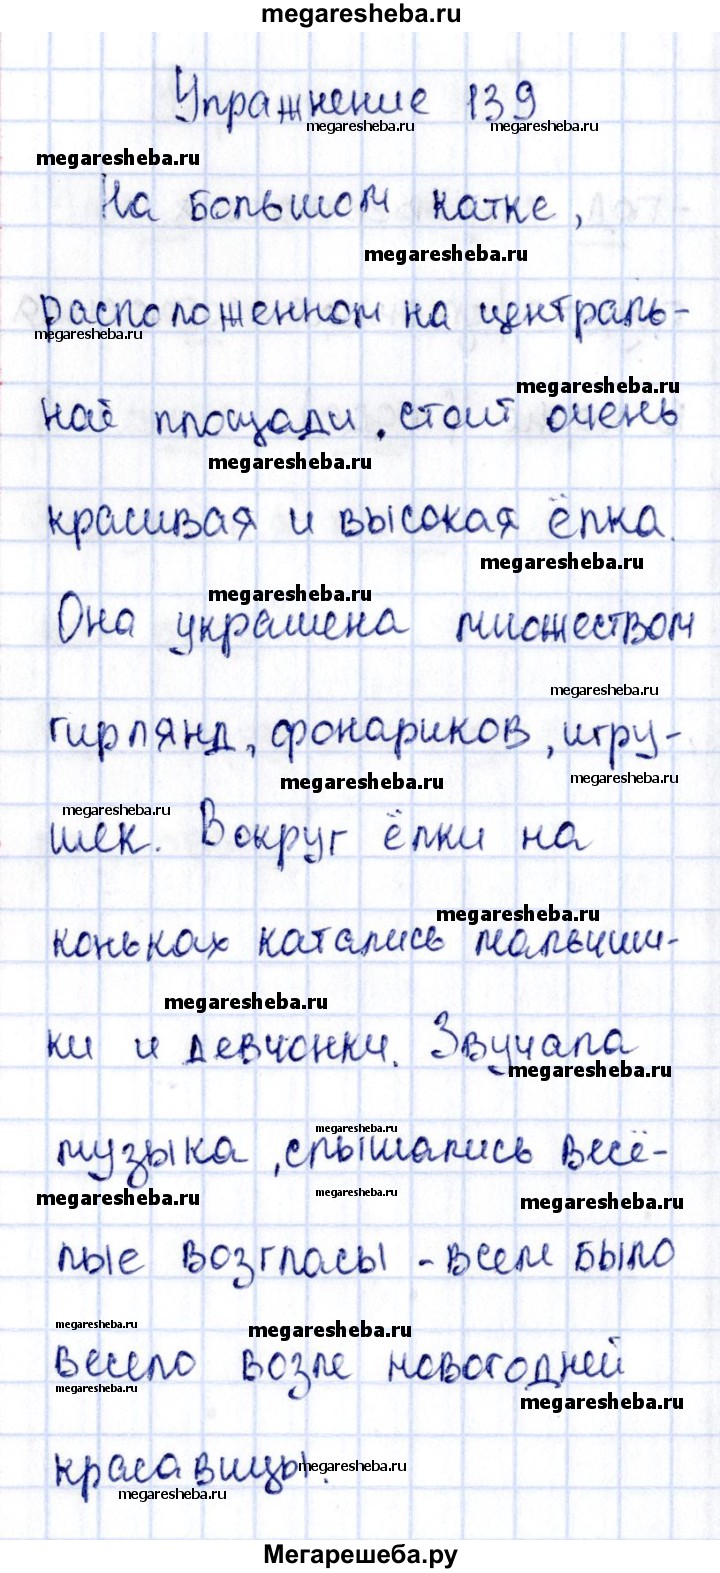 megaresheba.ru
Упражнение 139
megaresheba.ru megaresheba.ru
megaresheba.ru
На большом катке,
megaresheba.ru
расположенном на централь-
megaresheba.ru
megaresheba.ru
ной площади, стоит очень
megaresheba.ru
красивая и высокая ёлка.
megaresheba.ru
megaresheba.ru
Она украшена множеством
megaresheba.ru
гирлянд, фонариков, игру-
megaresheba.ru megaresheba.ru
megaresheba.ru
шек. Вокруг ёлки на
megaresheba.ru
коньках катались мальчиш-
megaresheba.ru
ки и девчонки. Звучала
megaresheba.ru
megaresheba.ru
музыка, слышались весё-
megaresheba.ru megaresheba.ru megaresheba.ru
лые возгласы - всем было
megaresheba.ru megaresheba.ru
весело возле новогодней
megaresheba.ru megaresheba.ru
красавицы.
megaresheba.ru
megaresheba.ru
Мегарешеба.ру